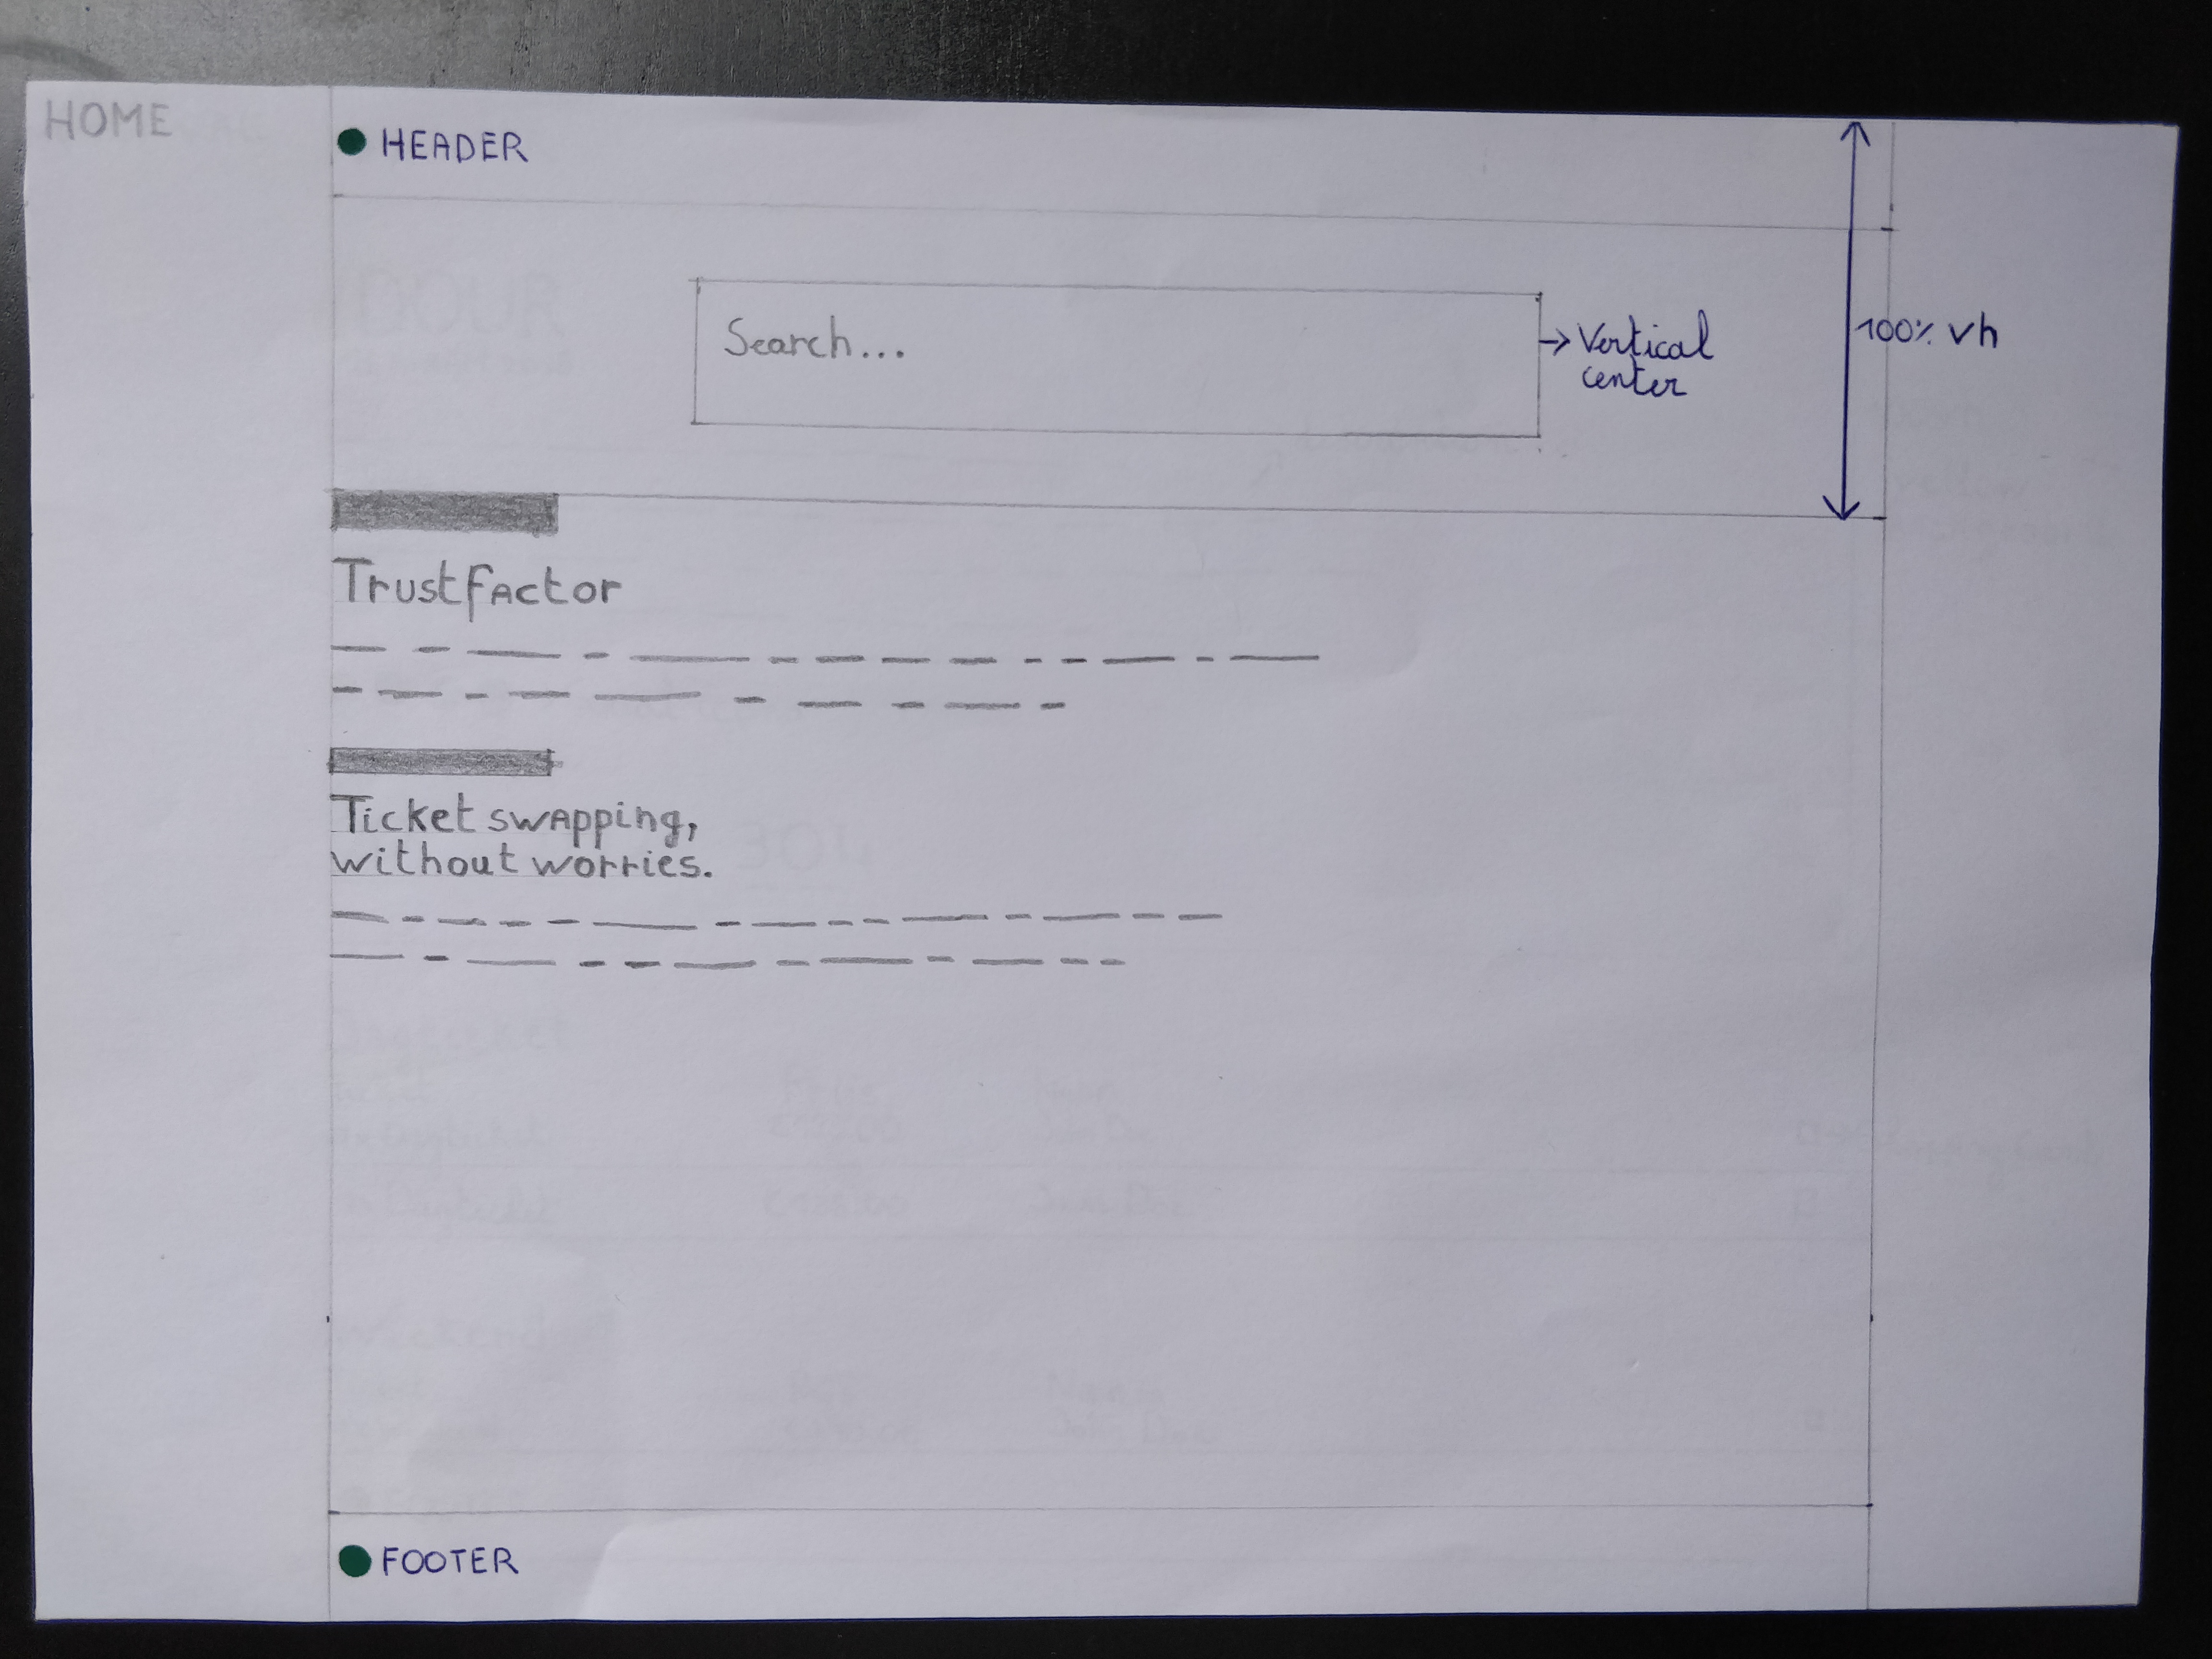 HOME
HEADER
Search...
→ Vertical
center
100% vh
Trustfactor
Ticket swapping,
without worries.
FOOTER